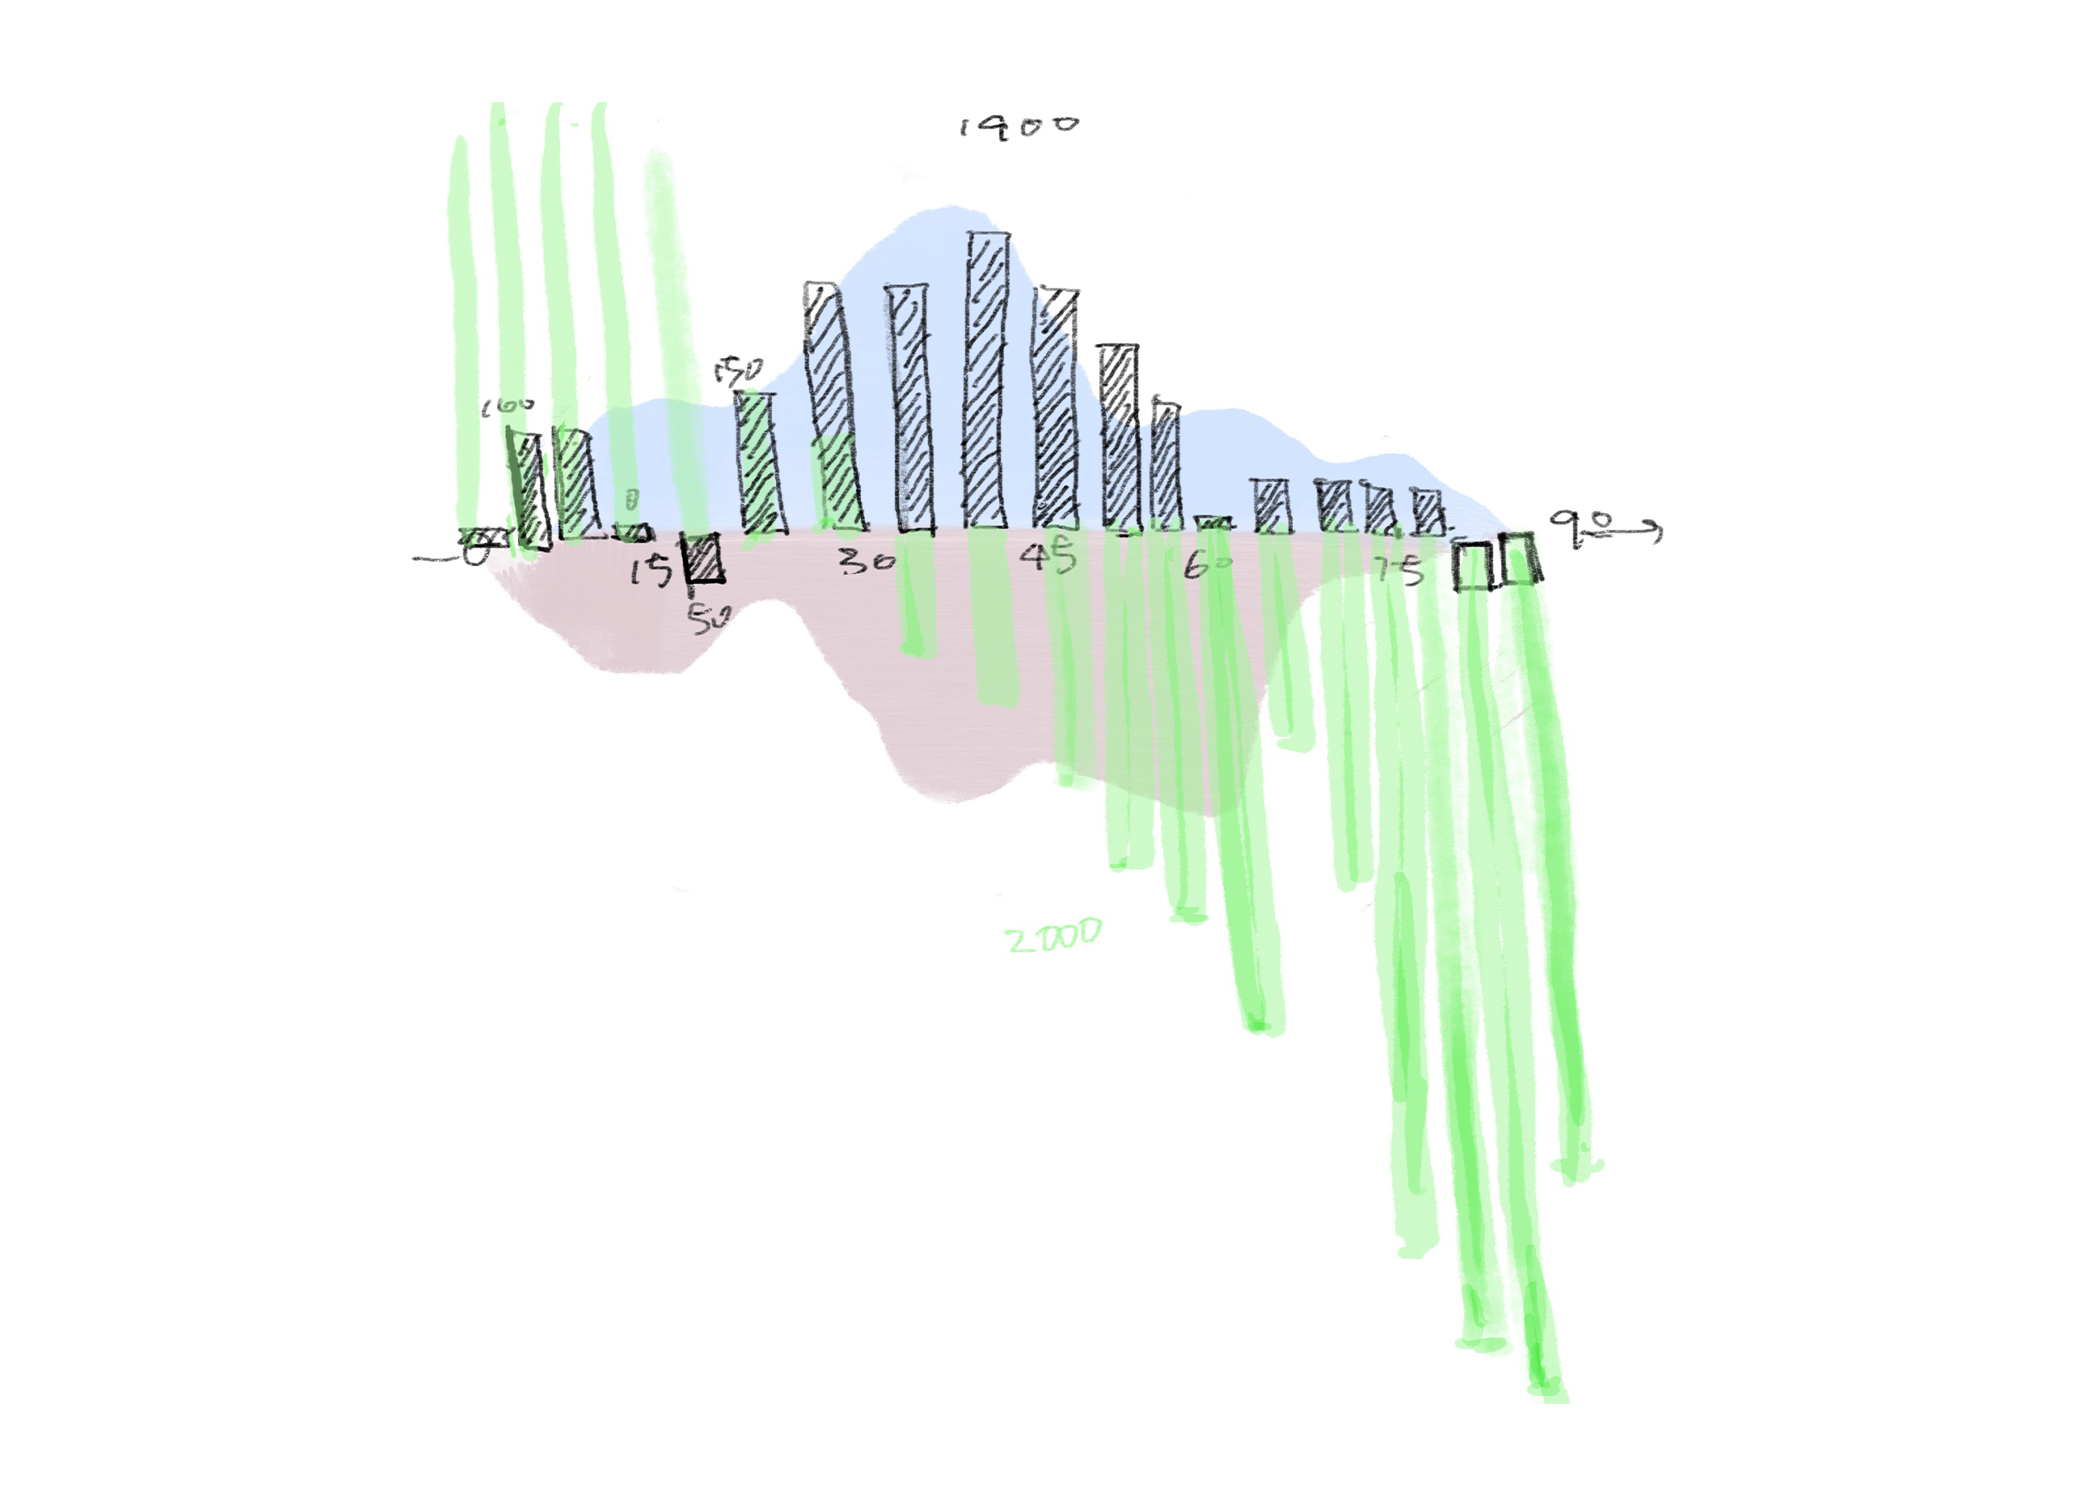 1900
150
100
0
0 15 30 45 60 75 90
50
2000